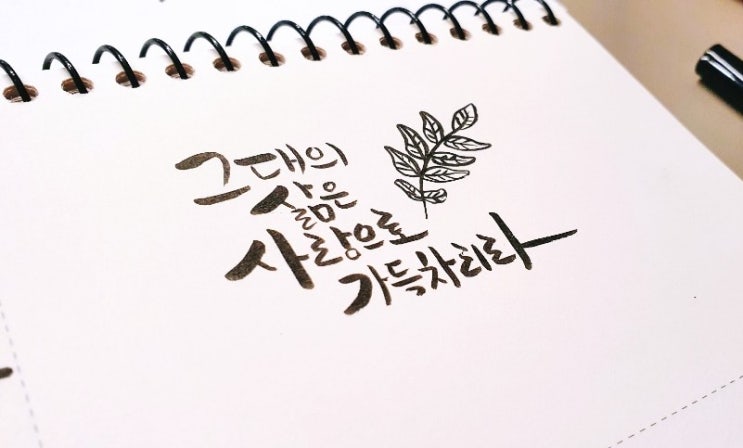 그대의
삶은
사랑으로
가득차리라